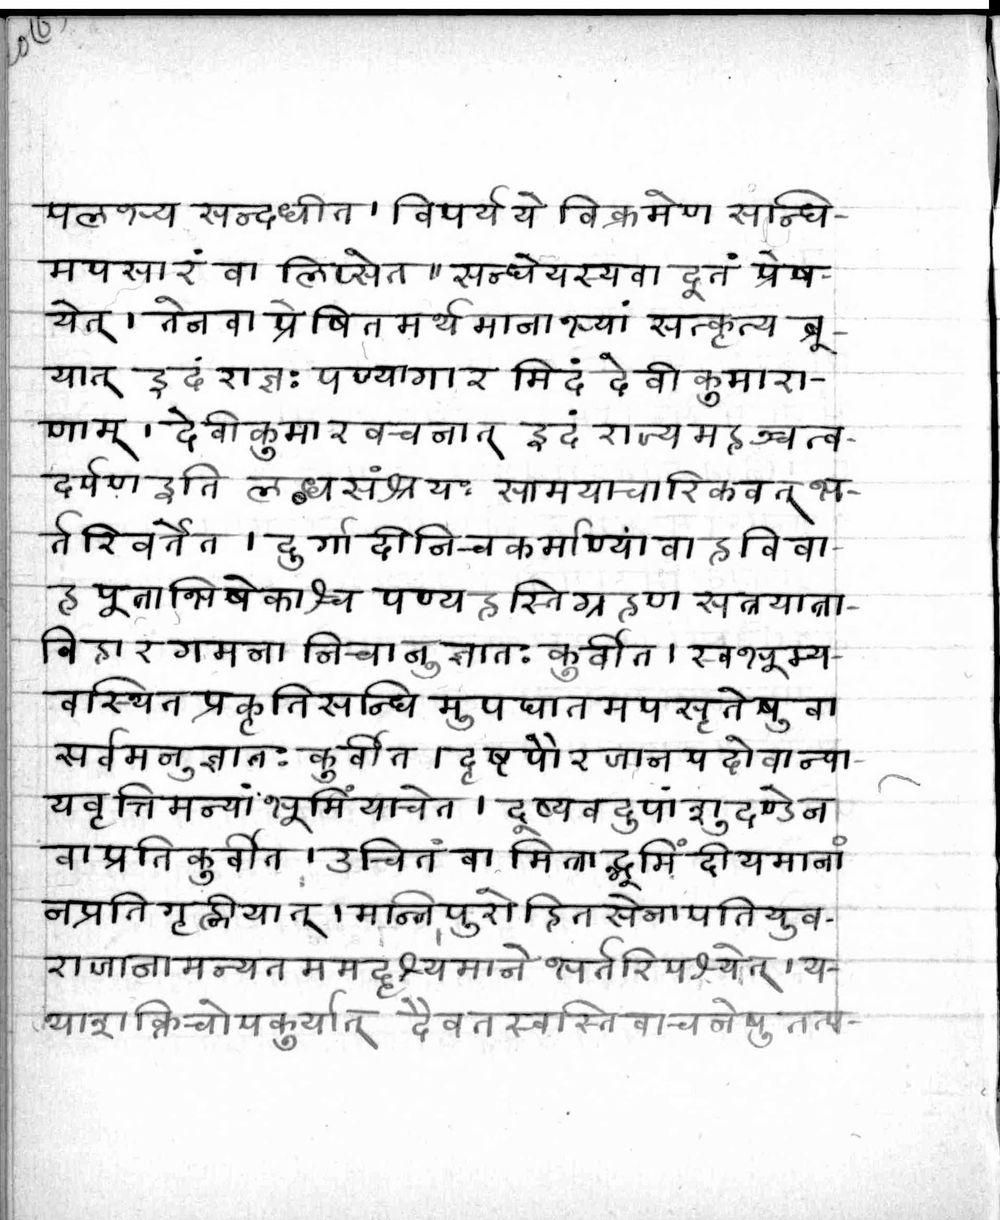 पलभ्य सन्दधीत । विपर्यये विक्रमेण सन्धि-
मपसारं वा लिप्सेत ॥ सन्धेयस्यवा दूतं प्रेष-
येत् । तेनवा प्रेषितमर्थमानाभ्यां सत्कृत्य ब्रू-
यात् इदं राज्ञः पण्यागारमिदं देवीकुमारा-
णाम् । देवीकुमारवचनात् इदं राज्यमहञ्चत्व-
दर्पण इति लब्धसंश्रयः सामयाचारिकवत् भ-
र्तरिवर्तेत । दुर्गादीनिचकर्माण्यावाहविवा-
हपूत्राभिषेकाश्च पण्यहस्तिग्रहणसत्रयात्रा-
विहारगमनानिचानुज्ञातः कुर्वीत । स्वभूम्य-
वस्थितप्रकृतिसन्धिमुपघातमपसृतेषुवा
सर्वमनुज्ञातः कुर्वीत । दृष्टपौरजानपदोवान्या-
यवृत्तिमन्यां भूमिंयाचेत । दूष्यवदुपांशुदण्डेन
वाप्रतिकुर्वीत । उचितं वा मित्राद्भूमिं दीयमानां
नप्रतिगृह्णीयात् । मन्त्रिपुरोहितसेनापतियुव-
राजानामन्यतममदृश्यमाने भर्तरिपश्येत् । य-
थाशक्तिचोपकुर्यात् दैवतस्वस्तिवाचनेषु तत्प-